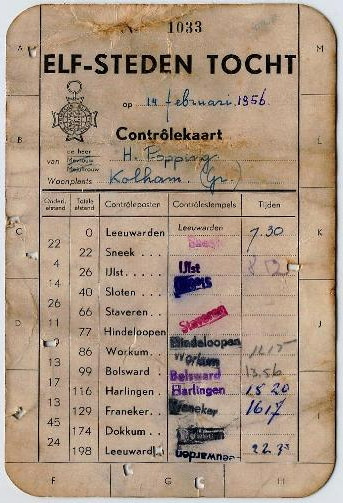 1033
ELF-STEDEN TOCHT
op 14 februari 1956
Contrôlekaart
de heer
van Mevrouw H. Popping
Mejuffrouw
Woonplaats Kolham. (Gr.)
Onderl. afstand Totale afstand Contrôleposten Contrôlestempels Tijden
0 Leeuwarden Leeuwarden 7.30
22
22 Sneek . . . Sneek
4
26 IJlst . . . . IJlst
14
40 Sloten . . . .
26
66 Staveren . . Staveren
11
77 Hindeloopen Hindeloopen
86 Workum . . Workum
13
99 Bolsward Bolsward 13.56
17
116 Harlingen . Harlingen 15 20
13
129 Franeker . . Franeker 16 17
45
174 Dokkum . .
24
198 Leeuward Leeuwarden
A
M
B
L
C
D
J
F
G
H